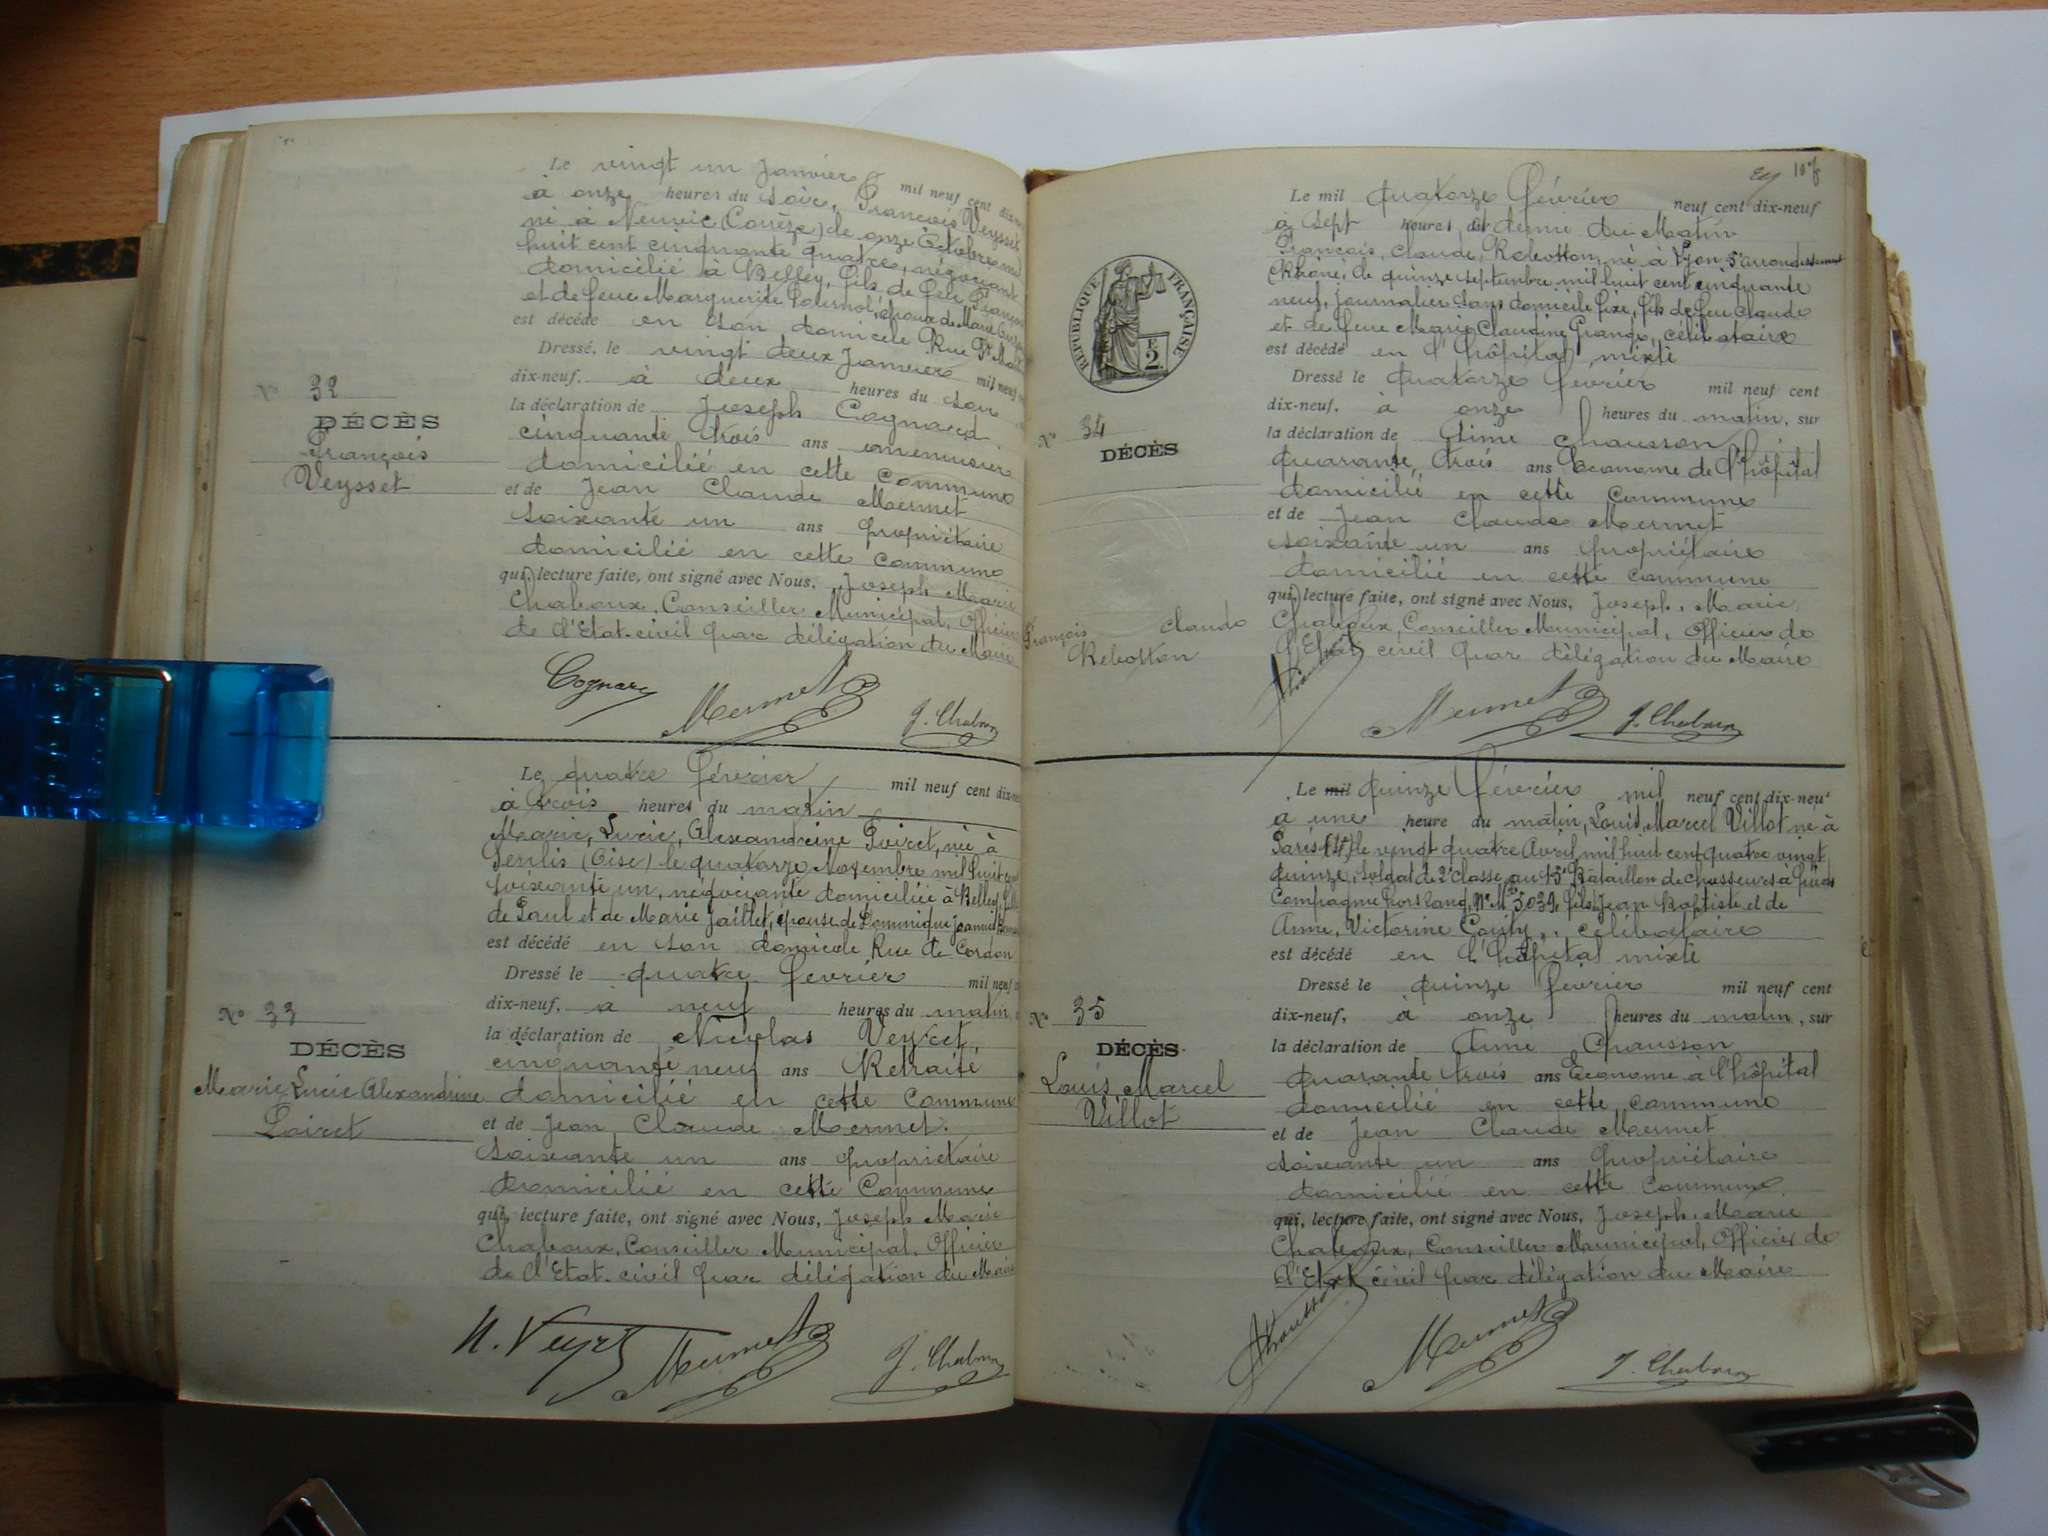 Le vingt un Janvier mil neuf cent dix-neuf
à onze heures du soir, François Veysset
né à Neuvic (Corrèze) le onze Octobre mil
huit cent cinquante quatre, négociant
domicilié à Belley, fils de feu François
et de feue Marguerite époux de Marie
est décédé en son domicile Rue St
Dressé, le vingt deux Janvier mil neuf
dix-neuf, à deux heures du soir
la déclaration de Joseph Cognard
cinquante trois ans menuisier
domicilié en cette commune
et de Jean Claude Mermet
soixante un ans propriétaire
domicilié en cette commune
qui, lecture faite, ont signé avec Nous, Joseph Marie
Chaboux, Conseiller Municipal, Officier
de l'Etat-civil par délégation du Maire
N° 32
DÉCÈS
François
Veysset
Cognard Mermet J. Chaboux
Le quatre février mil neuf cent dix-neuf
à trois heures du matin
Marie, Lucie, Alexandrine Poiret, née à
Senlis (Oise) le quatorze Novembre mil huit cent
soixante un, négociante domiciliée à Belley, fille
de Paul et de Marie Jaillet, épouse de Dominique
est décédé en son domicile Rue de Cordon
Dressé le quatre février mil neuf
dix-neuf, à neuf heures du matin
la déclaration de Nicolas Veyret,
cinquante neuf ans Retraité
domicilié en cette Commune
et de Jean Claude Mermet.
soixante un ans propriétaire
domicilié en cette Commune
qui, lecture faite, ont signé avec Nous, Joseph Marie
Chaboux, Conseiller Municipal, Officier
de l'Etat-civil par délégation du Maire
N° 33
DÉCÈS
Marie Lucie Alexandrine
Poiret
N. Veyret Mermet J. Chaboux
107
Le mil quatorze février neuf cent dix-neuf
à sept heures et demie du Matin
François, Claude, Rebotton, né à Lyon 5e arrondissement
(Rhône), le quinze septembre mil huit cent cinquante
neuf, journalier sans domicile fixe, fils de feu Claude
et de feue Marie Claudine Grange, célibataire
est décédé en l'hôpital mixte
Dressé le quatorze février mil neuf cent
dix-neuf, à onze heures du matin, sur
la déclaration de Aimé Chausson
quarante trois ans Econome de l'hôpital
domicilié en cette commune
et de Jean Claude Mermet
soixante un ans propriétaire
domicilié en cette commune
qui, lecture faite, ont signé avec Nous, Joseph, Marie,
Chaboux, Conseiller Municipal, Officier de
l'Etat civil par délégation du Maire
RÉPUBLIQUE FRANÇAISE
E
2
N° 34
DÉCÈS
François Claude
Rebotton
Chausson Mermet J. Chaboux
Le mil quinze février mil neuf cent dix-neuf
à une heure du matin, Louis, Marcel Villot né à
Paris le vingt quatre Avril mil huit cent quatre vingt
quinze, soldat de 2e classe au Bataillon de chasseurs à pieds
Compagnie hors rang, fils Jean Baptiste et de
Anne, Victorine célibataire
est décédé en l'hôpital mixte
Dressé le quinze février mil neuf cent
dix-neuf, à onze heures du matin, sur
la déclaration de Aimé Chausson
quarante trois ans Econome à l'hôpital
domicilié en cette commune
et de Jean Claude Mermet
soixante un ans propriétaire
domicilié en cette commune
qui, lecture faite, ont signé avec Nous, Joseph, Marie
Chaboux, Conseiller Municipal, Officier de
l'Etat civil par délégation du Maire
N° 35
DÉCÈS
Louis Marcel
Villot
Chausson Mermet J. Chaboux